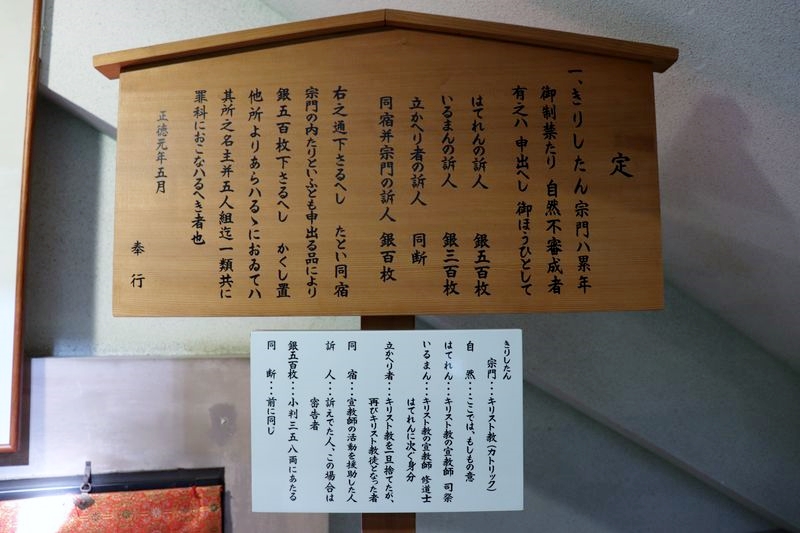 定
一、きりしたん宗門ハ累年
御制禁たり 自然不審成者
有之ハ 申出へし 御ほうひとして
はてれんの訴人 銀五百枚
いるまんの訴人 銀三百枚
立かへり者の訴人 同断
同宿并宗門の訴人 銀百枚
右之通下さるへし たとい同宿
宗門の内たりといふとも申出る品により
銀五百枚下さるへし かくし置
他所よりあらハるゝにおゐてハ
其所之名主并五人組迄一類共に
罪科におこなハるへき者也
正徳元年五月
奉行
きりしたん
宗門・・・キリスト教(カトリック)
自然・・・ここでは、もしもの意
はてれん・・・キリスト教の宣教師 司祭
いるまん・・・キリスト教の宣教師 修道士
はてれんに次ぐ身分
立かへり者・・・キリスト教を一旦捨てたが、
再びキリスト教徒となった者
同宿・・・宣教師の活動を援助した人
訴人・・・訴えでた人、この場合は
密告者
銀五百枚・・・小判三五八両にあたる
同断・・・前に同じ